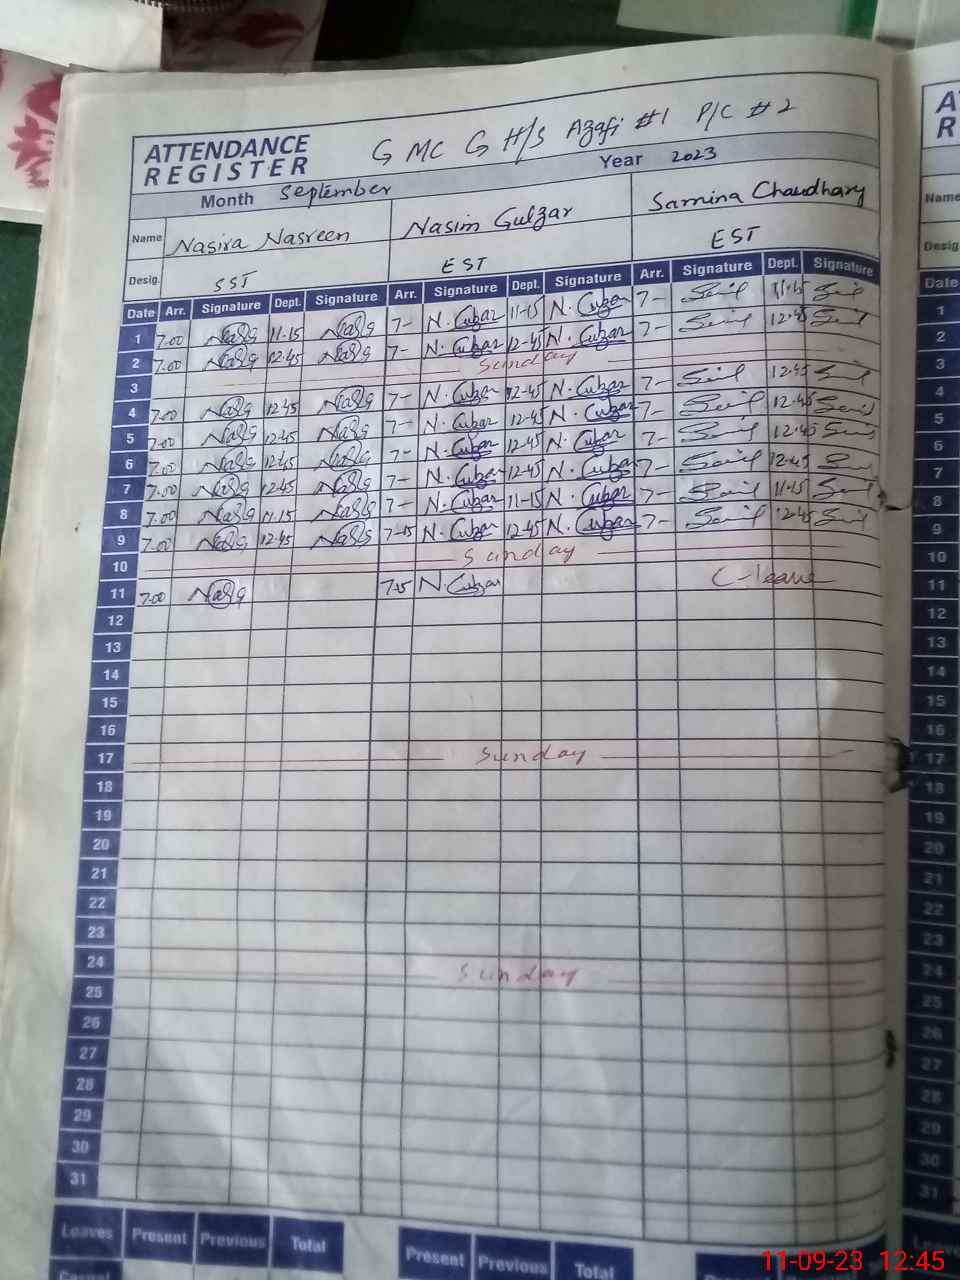 ATTENDANCE REGISTER G MC G H/S Azafi #1 P/C # 2
Month September Year 2023
Name Nasira Nasreen Nasim Gulzar Samina Chaudhary
Desig. SST EST EST
Date Arr. Signature Dept. Signature Arr. Signature Dept. Signature Arr. Signature Dept. Signature
1 7.00 11-15 7- N. Gulzar 11-15 N. Gulzar 7- 11-15
2 7.00 12-45 7- N. Gulzar 12-45 N. Gulzar 7- 12-45
3 Sunday
4 7.00 12-45 7- N. Gulzar 12-45 N. Gulzar 7- 12-45
5 7.00 12-45 7- N. Gulzar 12-45 N. Gulzar 7- 12-45
6 7.00 12-45 7- N. Gulzar 12-45 N. Gulzar 7- 12-45
7 7.00 12-45 7- N. Gulzar 12-45 N. Gulzar 7- 12-45
8 7.00 11-15 7- N. Gulzar 11-15 N. Gulzar 7- 11-15
9 7.00 12-45 7-15 N. Gulzar 12-45 N. Gulzar 7- 12-45
10 Sunday
11 7.00 N. Gulzar C-leave
12
13
14
15
16
17 Sunday
18
19
20
21
22
23
24 Sunday
25
26
27
28
29
30
31
Leaves Present Previous Total Present Previous Total
Name
Desig
Date
1
2
3
4
5
6
7
8
9
10
11
12
13
14
15
16
17
18
19
20
21
22
23
24
25
26
27
28
29
30
31
11-09-23 12:45